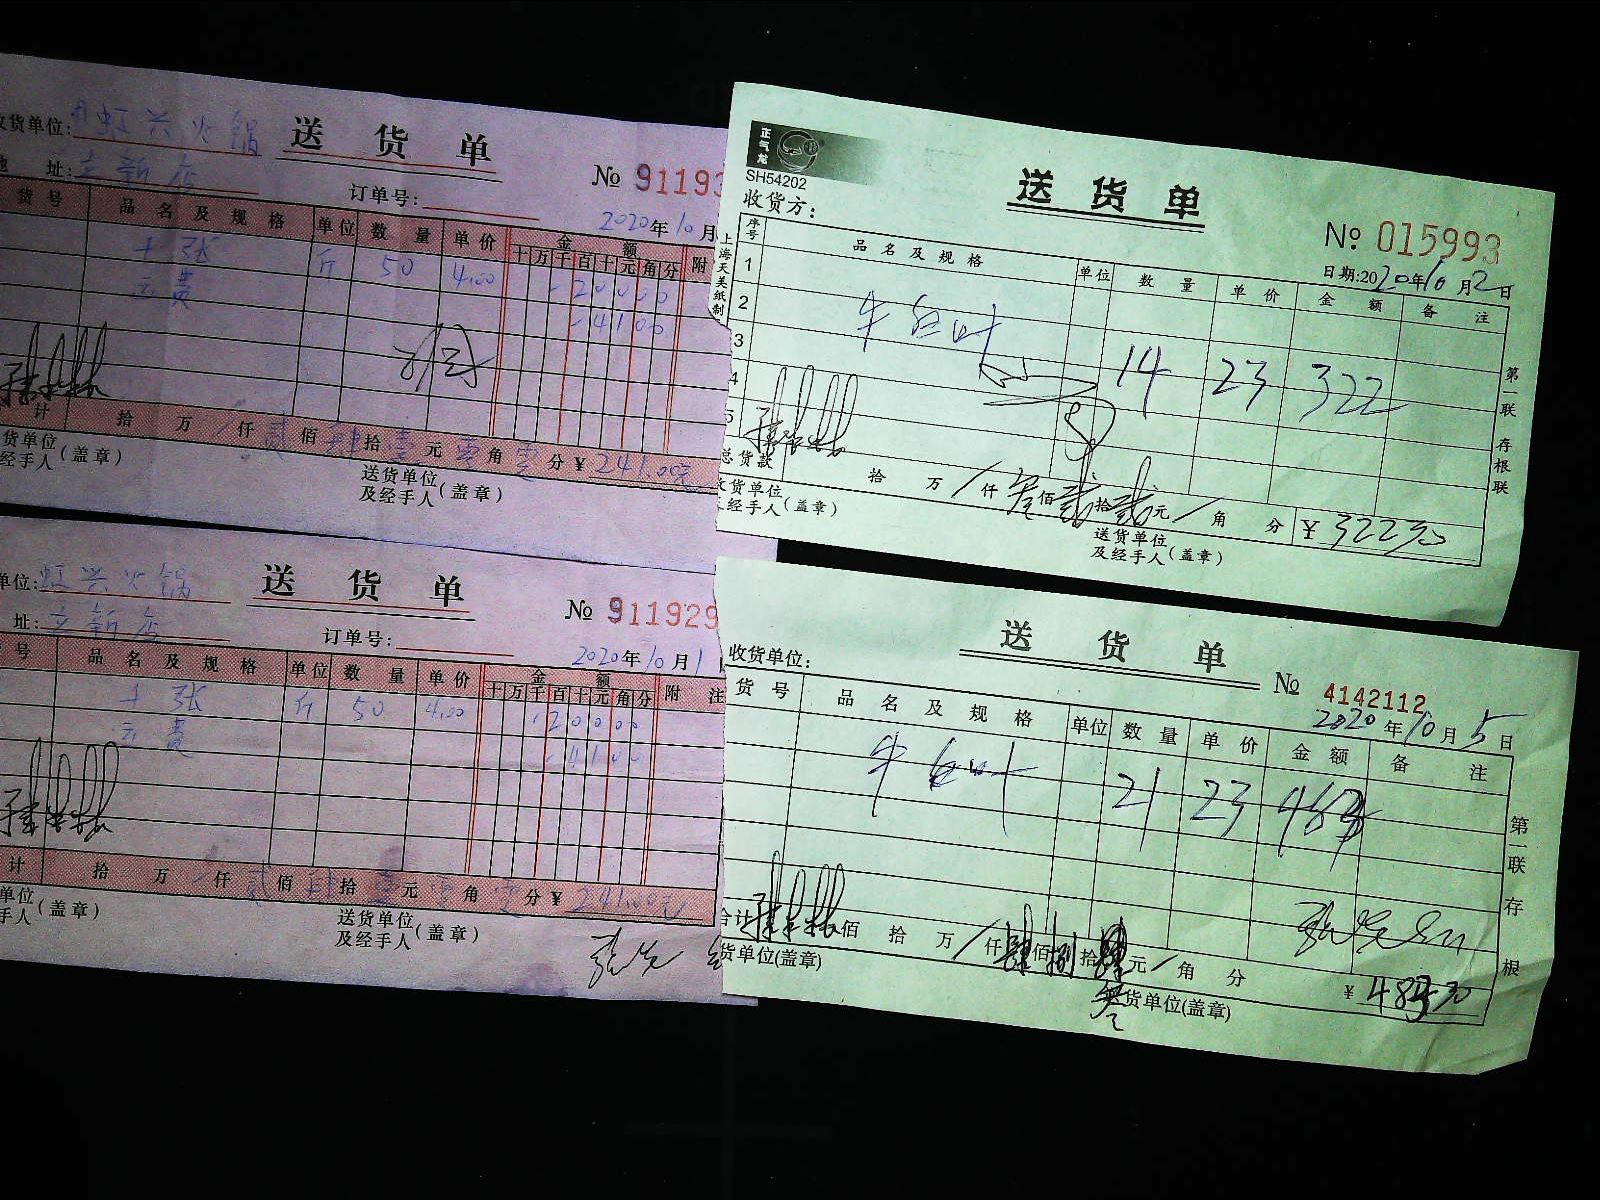 收货单位: 虹兴火锅
送货单
地址: 立新店
№ 91193
订单号:
2020年10月
货号 品名及规格 单位 数量 单价 金额 附
十万千百十元角分
千张 斤 50 4.00 20000
运费 4100
计 拾 万 仟 贰佰 肆拾 壹元 零角 零分 ¥ 241.00元
货单位(盖章)
经手人
送货单位
及经手人(盖章)
单位: 虹兴火锅
送货单
址: 立新店
№ 911929
订单号:
2020年10月1
号 品名及规格 单位 数量 单价 金额 附注
十万千百十元角分
千张 斤 50 4.00 20000
运费 4100
计 拾 万 仟 贰佰 肆拾 壹元 零角 零分 ¥ 241.00元
单位(盖章)
手人
送货单位
及经手人(盖章)
正气龙
SH54202
送货单
收货方:
№ 015993
日期:2020年10月2日
序号 品名及规格 单位 数量 单价 金额 备注
1
2
3
4
5
牛百叶 14 23 322
总货款 拾 万 / 仟 叁佰 贰拾 贰元 / 角 分 ¥ 322元
收货单位
经手人(盖章)
送货单位
及经手人(盖章)
上海天美纸制
第一联 存根联
送货单
收货单位:
№ 4142112
2020年10月5日
货号 品名及规格 单位 数量 单价 金额 备注
牛百叶 21 23 483
合计 佰 拾 万 / 仟 肆佰 捌拾 元 / 角 分
叁
¥ 483元
货单位(盖章)
货单位(盖章)
第一联 存根